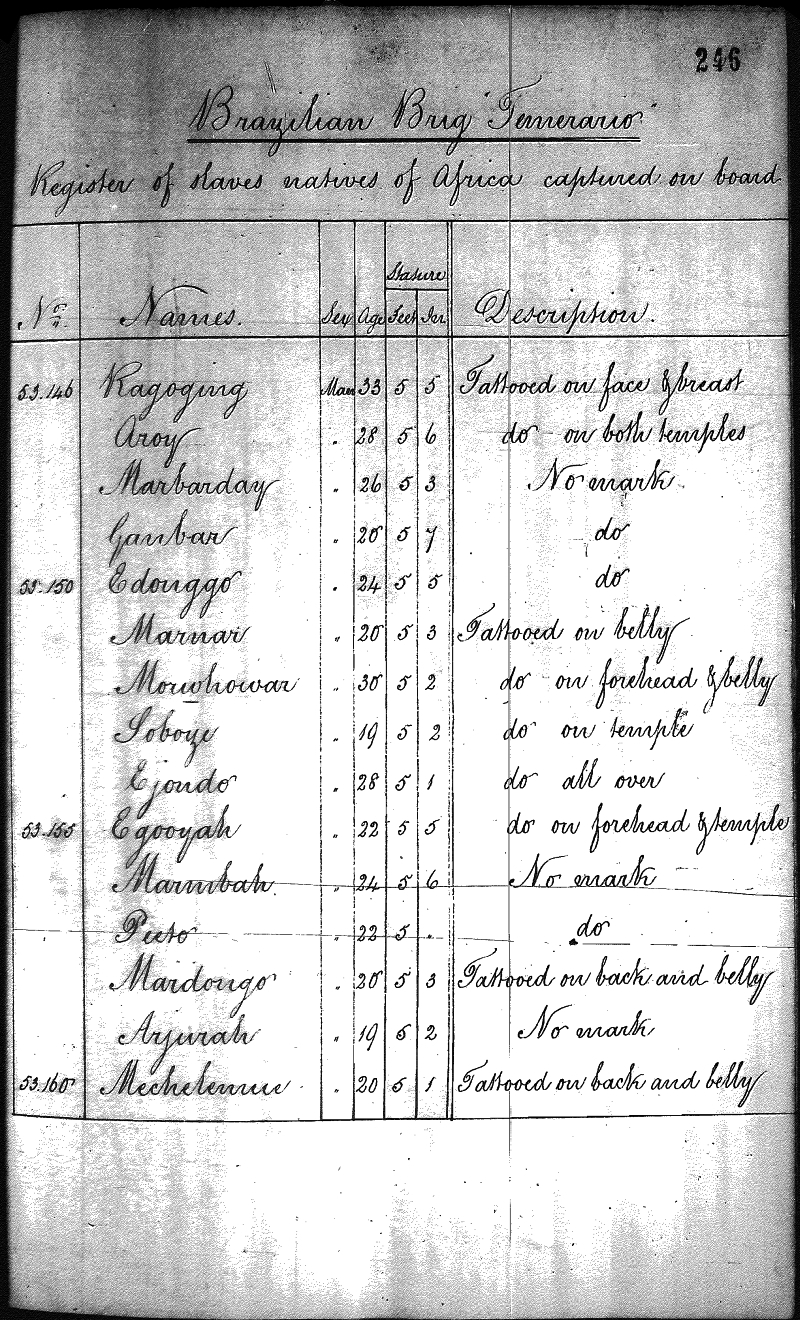 246
Brazilian Brig "Temerario"
Register of slaves natives of Africa captured on board
Stature
Nos. Names. Sex Age Feet In. Description.
53.146 Kagoging Man 33 5 5 Tattooed on face & breast
Aroy " 28 5 6 do on both temples
Marbarday " 26 5 3 No mark
Ganbar " 20 5 7 do
53.150 Edonggo " 24 5 5 do
Marnai " 20 5 3 Tattooed on belly
Mowhowar " 30 5 2 do on forehead & belly
Soboze " 19 5 2 do on temple
Ejondo " 28 5 1 do all over
53.155 Egooyah " 22 5 5 do on forehead & temple
Marmbah " 24 5 6 No mark
Peeto " 22 5 " do
Mardongo " 20 5 3 Tattooed on back and belly
Arjurah " 19 5 2 No mark
53.160 " 20 5 1 Tattooed on back and belly